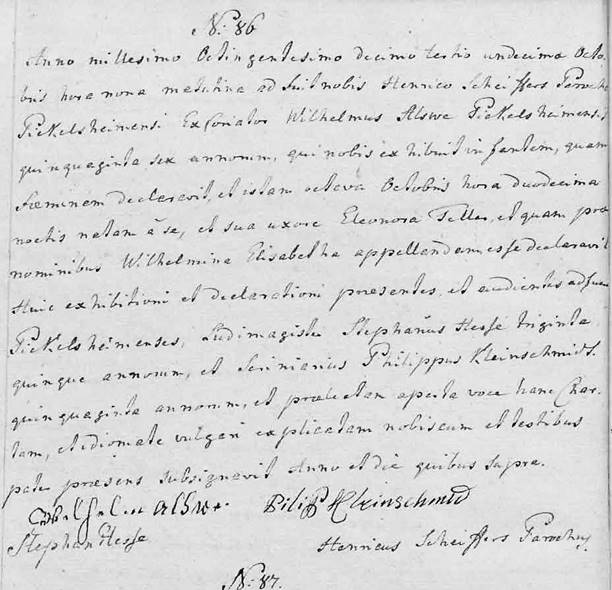 N: 86
Anno millesimo Octingentesimo decimo tertio undecima Octo-
bris hora nona matutina adfuit nobis Henrico Scheiffers Parocho
Pickelsheimensi Excoriator Wilhelmus Alswe Pickelsheimensis
quinquaginta sex annorum, qui nobis exhibuit infantem, quam
foeminem declaravit, et istam octava Octobris hora duodecima
noctis natam à se, et sua uxore Eleonora Teller, et quam prae
nominibus Wilhelmina Elisabetha appellandam esse declaravit
Huic exhibitioni et declarationi praesentes, et audientes adfuere
Pickelsheimenses, Ludimagister Stephanus Hesse triginta
quinque annorum, et Scriniarius Philippus Kleinschmids.
quinquaginta annorum, et praelectam aperta voce hanc Char-
tam, et idiomate vulgari explicatam nobiscum et testibus
pater praesens subsignavit Anno et die quibus supra.
Wilhelm alswe. Pilip Kleinschmid
Stephan Hesse Henricus Scheiffers Parochus
N: 87.